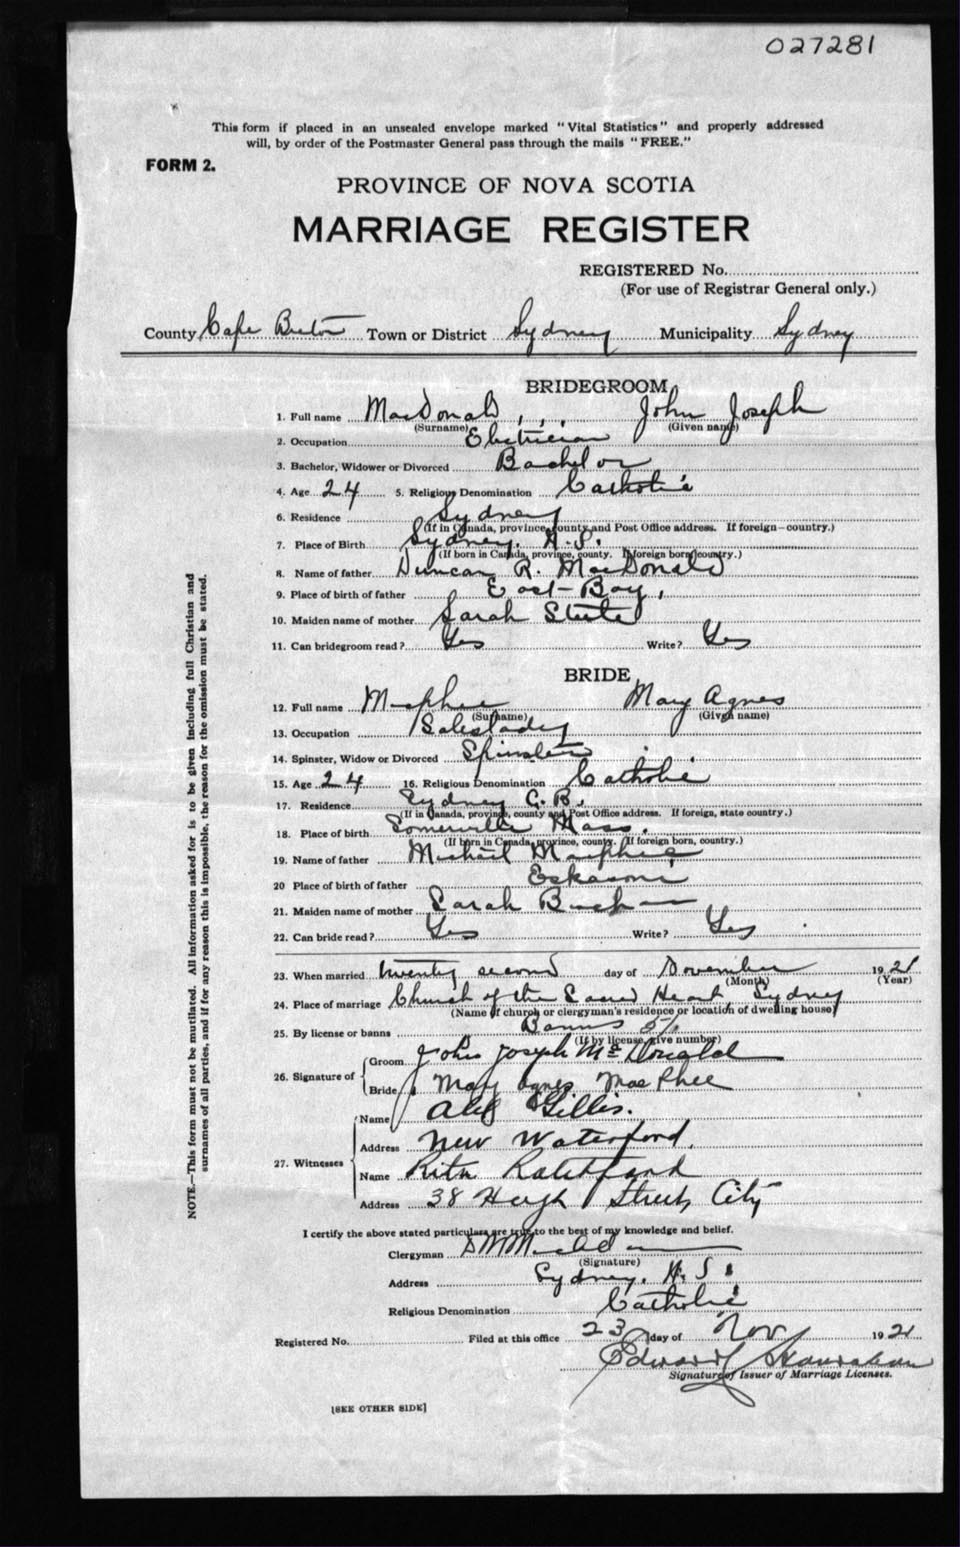 027281
This form if placed in an unsealed envelope marked "Vital Statistics" and properly addressed
will, by order of the Postmaster General pass through the mails "FREE."
FORM 2.
PROVINCE OF NOVA SCOTIA
MARRIAGE REGISTER
REGISTERED No.
(For use of Registrar General only.)
County Cape Breton Town or District Sydney Municipality Sydney
BRIDEGROOM
1. Full name MacDonald, John Joseph
(Surname) (Given name)
2. Occupation Electrician
3. Bachelor, Widower or Divorced Bachelor
4. Age 24 5. Religious Denomination Catholic
6. Residence Sydney
(If in Canada, province, county and Post Office address. If foreign—country.)
7. Place of Birth Sydney. N.S.
(If born in Canada, province, county. If foreign born, country.)
8. Name of father Duncan R. MacDonald
9. Place of birth of father East-Bay,
10. Maiden name of mother Sarah
11. Can bridegroom read? Yes Write? Yes
BRIDE
12. Full name Macphee Mary Agnes
(Surname) (Given name)
13. Occupation Saleslady
14. Spinster, Widow or Divorced Spinster
15. Age 24 16. Religious Denomination Catholic
17. Residence Sydney C.B.
(If in Canada, province, county and Post Office address. If foreign, state country.)
18. Place of birth Somerville Mass.
(If born in Canada, province, county. If foreign born, country.)
19. Name of father Michael Macphee
20 Place of birth of father Eskasoni
21. Maiden name of mother Sarah
22. Can bride read? Yes Write? Yes
23. When married twenty second day of November 1921
(Month) (Year)
24. Place of marriage Church of the Sacred Heart, Sydney
(Name of church or clergyman's residence or location of dwelling house)
25. By license or banns Banns
(If by license, give number)
26. Signature of Groom John Joseph McDonald
Bride Mary Agnes MacPhee
27. Witnesses Name Alex Gillis.
Address New Waterford.
Name Rita Ratchford
Address 38 High Street, City
I certify the above stated particulars are true to the best of my knowledge and belief.
Clergyman
(Signature)
Address Sydney. N.S.
Religious Denomination Catholic
Registered No. Filed at this office 23 day of Nov 1921
Edward
Signature of Issuer of Marriage Licenses.
[SEE OTHER SIDE]
NOTE.—This form must not be mutilated. All information asked for is to be given including full Christian and
surnames of all parties, and if for any reason this is impossible, the reason for the omission must be stated.